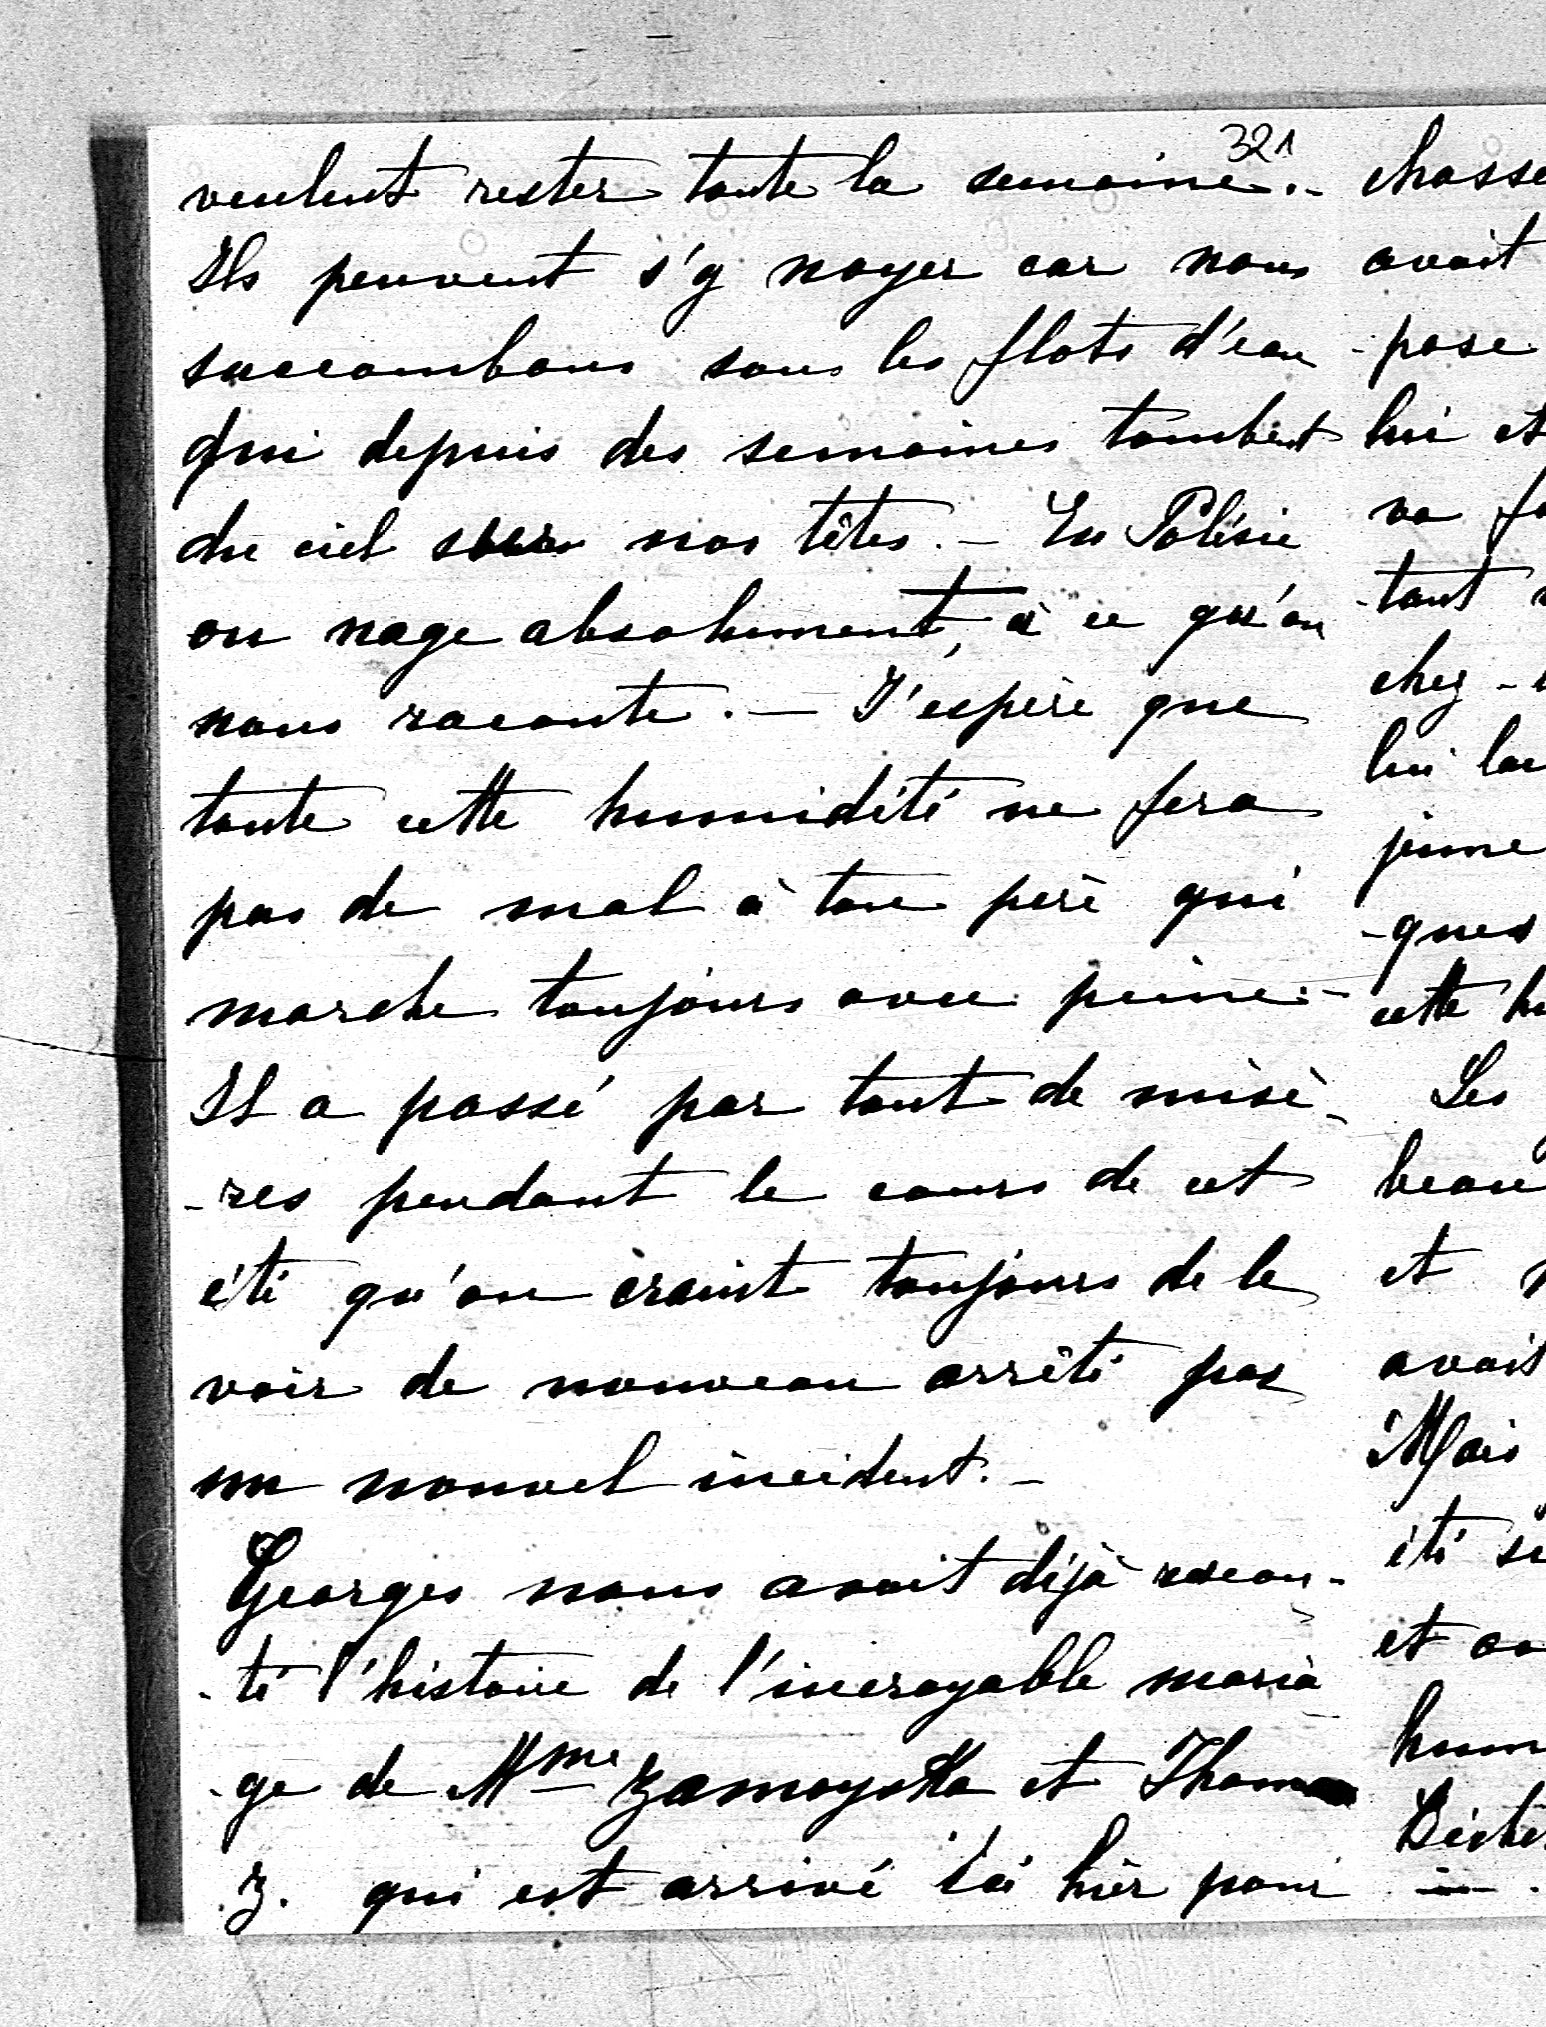 321
veulent rester toute la semaine.-
Ils peuvent s'y noyer car nous
succombons sous les flots d'eau
qui depuis des semaines tombent
du ciel sur nos têtes. - En Polésie
on nage absolument, à ce qu'on
nous raconte. — J'espère que
toute cette humidité ne fera
pas de mal à ton père qui
marche toujours avec peine.-
Il a passé par tant de misè-
-res pendant le cours de cet
été qu'on craint toujours de le
voir de nouveau arrêté par
un nouvel incident. -
Georges nous avait déjà racon-
-té l'histoire de l'incroyable maria
-ge de Mme Zamoyska et Thomas
Z. qui est arrivé ici hier pour
chasse
avait
-pose
lui et
va
-tant
chez -
lui
jeune
-ques
cette
Les
beau
et
avait
Mais
été
et